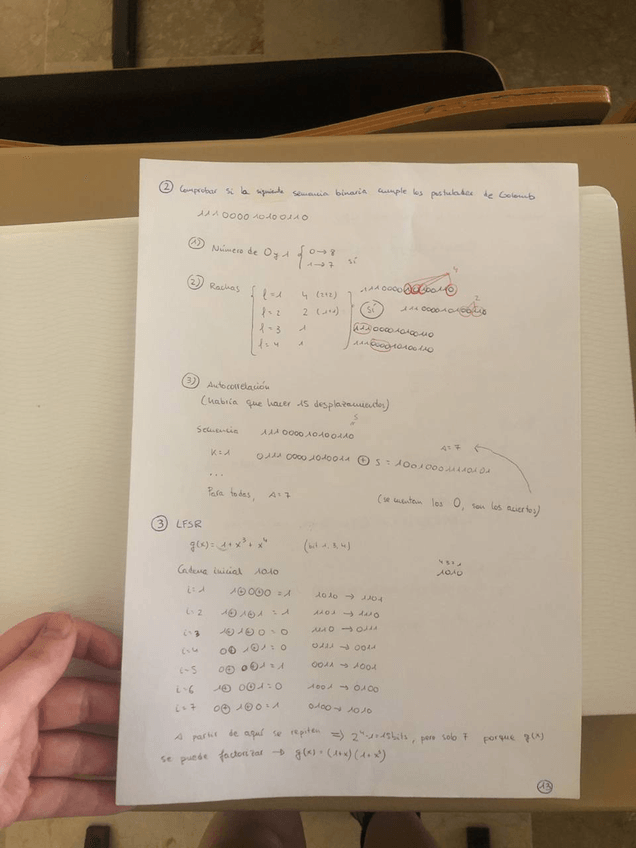 ② Comprobar si la siguiente secuencia binaria cumple los postulados de Golomb
111000010100110
1) Número de 0 y 1 { 0→8 1→7 sí
2) Rachas
l=1 4 (2+2)
l=2 2 (1+1)
l=3 1
l=4 1
Sí
111000010100110 4
111000010100110 2
111000010100110
111000010100110
3) Autocorrelación
(Habría que hacer 15 desplazamientos)
Secuencia 111000010100110 S
K=1 011100001010011 ⊕ S = 100100011110101 A=7
...
Para todas, A=7 (se cuentan los 0, son los aciertos)
③ LFSR
g(x) = 1+x³+x⁴ (bit 1, 3, 4)
Cadena inicial 1010
4321
1010
i=1 1⊕0⊕0=1 1010 → 1101
i=2 1⊕1⊕1=1 1101 → 1110
i=3 1⊕1⊕0=0 1110 → 0111
i=4 0⊕1⊕1=0 0111 → 0011
i=5 0⊕0⊕1=1 0011 → 1001
i=6 1⊕0⊕1=0 1001 → 0100
i=7 0⊕1⊕0=1 0100 → 1010
A partir de aquí se repiten ⇒ 2⁴-1=15bits, pero solo 7 porque g(x)
se puede factorizar → g(x) = (1+x)(1+x³)
13